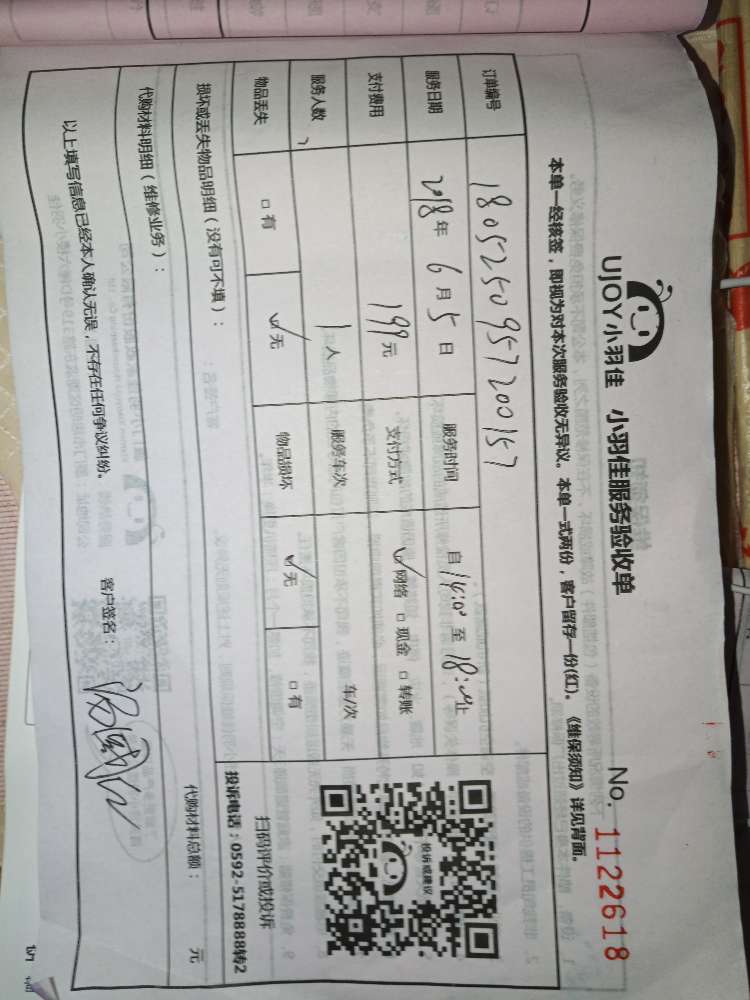 UJOY小羽佳 小羽佳服务验收单 No. 1122618
本单一经核签，即视为对本次服务验收无异议。本单一式两份，客户留存一份(红)。《维保须知》详见背面。
订单编号 1805250957200157
服务日期 2018年 6月5日 服务时间 自14:00至18:00止
支付费用 199元 支付方式 ✓网络 □现金 □转账
服务人数 1人 服务车次 车/次
物品丢失 □有 ✓无 物品损坏 ✓无 □有
投诉或建议
扫码评价或投诉
投诉电话：0592-5178888转2
损坏或丢失物品明细（没有可不填）：
代购材料明细（维修业务）： 代购材料总额： 元
以上填写信息已经本人确认无误，不存在任何争议纠纷。 客户签名：